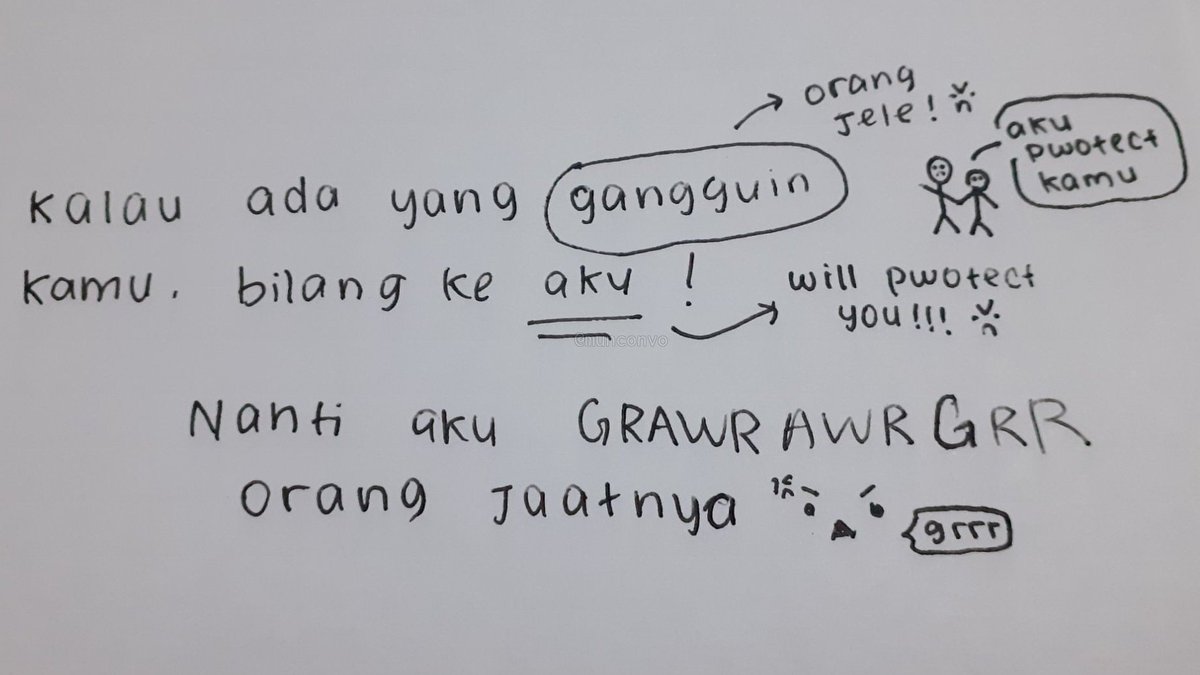 orang
jele!
aku
pwotect
kamu
kalau ada yang gangguin
kamu. bilang ke aku !
will pwotect
you!!!
Nanti aku GRAWRAWRGRR
orang jaatnya
grrr